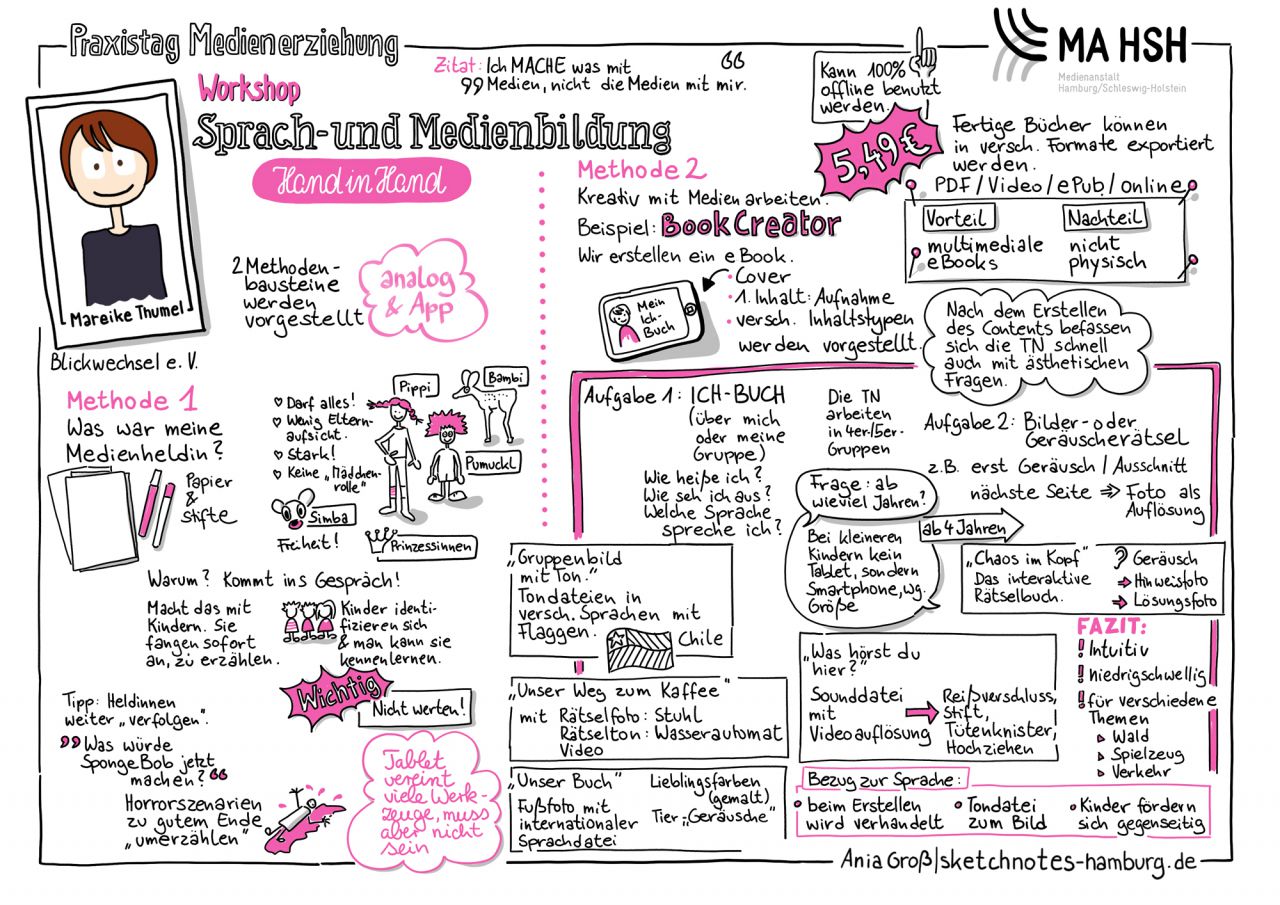 Praxistag Medienerziehung
MA HSH
Medienanstalt
Hamburg/Schleswig-Holstein
Zitat: Ich MACHE was mit
Medien, nicht die Medien mit mir.
Workshop
Sprach- und Medienbildung
Hand in Hand
Mareike Thumel
Blickwechsel e. V.
2 Methoden-
bausteine
werden
vorgestellt
analog
& App
Methode 1
Was war meine
Medienheldin?
Papier
&
stifte
♡ Darf alles!
♡ Wenig Eltern-
aufsicht.
♡ Stark!
♡ Keine „Mädchen-
rolle"
Pippi
Bambi
Pumuckl
Simba
Freiheit!
Prinzessinnen
Warum? Kommt ins Gespräch!
Macht das mit
Kindern. Sie
fangen sofort
an, zu erzählen.
Kinder identi-
fizieren sich
& man kann sie
kennenlernen.
Wichtig
Nicht werten!
Tipp: Heldinnen
weiter „verfolgen".
Was würde
SpongeBob jetzt
machen?
Horrorszenarien
zu gutem Ende
„umerzählen"
Tablet
vereint
viele Werk-
zeuge, muss
aber nicht
sein
Methode 2
Kreativ mit Medien arbeiten.
Beispiel: BookCreator
Wir erstellen ein eBook.
Mein
Ich-
Buch
• Cover
• 1. Inhalt: Aufnahme
• versch. Inhaltstypen
werden vorgestellt.
Kann 100%
offline benutzt
werden.
5,49€
Fertige Bücher können
in versch. Formate exportiert
werden.
PDF/Video/ePub/online
Vorteil
multimediale
eBooks
Nachteil
nicht
physisch
Nach dem Erstellen
des Contents befassen
sich die TN schnell
auch mit ästhetischen
Fragen.
Aufgabe 1: ICH-BUCH
(über mich
oder meine
Gruppe)
Wie heiße ich?
Wie seh ich aus?
Welche Sprache
spreche ich?
Die TN
arbeiten
in 4er-/5er-
Gruppen
Aufgabe 2: Bilder- oder
Geräuscherätsel
z.B. erst Geräusch / Ausschnitt
nächste Seite ⇒ Foto als
Auflösung
Frage: ab
wieviel Jahren?
ab 4 Jahren
Bei kleineren
Kindern kein
Tablet, sondern
Smartphone, wg.
Größe
„Gruppenbild
mit Ton."
Tondateien in
versch. Sprachen mit
Flaggen.
Chile
„Chaos im Kopf"
Das interaktive
Rätselbuch.
Geräusch
→ Hinweisfoto
→ Lösungsfoto
„Unser Weg zum Kaffee"
mit Rätselfoto: Stuhl
Rätselton: Wasserautomat
Video
„Was hörst du
hier?"
Sounddatei
mit
Videoauflösung
Reißverschluss,
Stift,
Tütenknister,
Hochziehen
FAZIT:
! Intuitiv
! niedrigschwellig
! für verschiedene
Themen
Wald
Spielzeug
Verkehr
„Unser Buch"
Fußfoto mit
internationaler
Sprachdatei
Lieblingsfarben
(gemalt)
Tier-„Geräusche"
Bezug zur Sprache:
• beim Erstellen
wird verhandelt
• Tondatei
zum Bild
• Kinder fördern
sich gegenseitig
Ania Groß|sketchnotes-hamburg.de